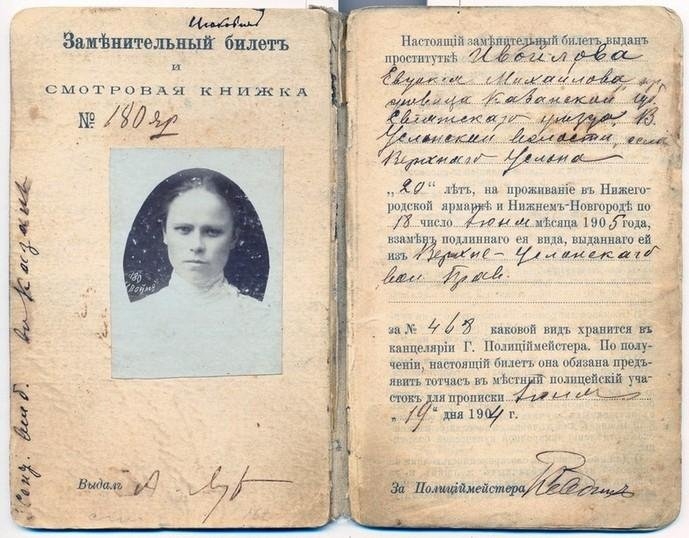 Замѣнительный билетъ
и
СМОТРОВАЯ КНИЖКА
№ 180 яр
Выдалъ А.
въ Казань
Настоящій замѣнительный билетъ выданъ
проституткѣ Ивойлова
Михайлова
Казанской губ
уѣзда, В.
Услонской волости, села
Верхняго Услона
„20“ лѣтъ, на проживаніе въ Нижего-
родской ярмаркѣ и Нижнемъ-Новгородѣ по
18 число Іюня мѣсяца 1905 года,
взамѣнъ подлиннаго ея вида, выданнаго ей
изъ Верхне-Услонскаго
вол. Прав.
за № 468 каковой видъ хранится въ
канцеляріи Г. Полиціймейстера. По полу-
ченіи, настоящій билетъ она обязана предъ-
явить тотчасъ въ мѣстный полицейскій уча-
стокъ для прописки Іюня
„19“ дня 1904 г.
За Полиціймейстера